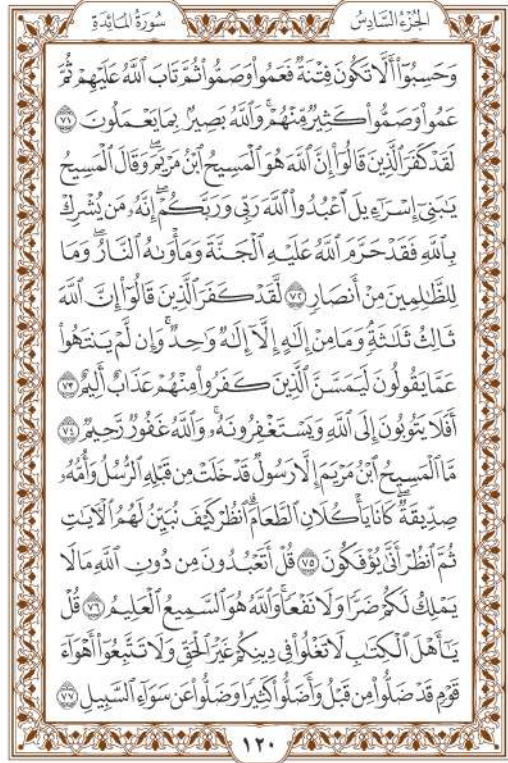 الجُزْءُ السَّادِسُ
سُورَةُ المَائِدَةِ
وَحَسِبُوٓاْ أَلَّا تَكُونَ فِتْنَةٞ فَعَمُواْ وَصَمُّواْ ثُمَّ تَابَ ٱللَّهُ عَلَيۡهِمۡ ثُمَّ
عَمُواْ وَصَمُّواْ كَثِيرٞ مِّنۡهُمۡۚ وَٱللَّهُ بَصِيرُۢ بِمَا يَعۡمَلُونَ ٧١
لَقَدۡ كَفَرَ ٱلَّذِينَ قَالُوٓاْ إِنَّ ٱللَّهَ هُوَ ٱلۡمَسِيحُ ٱبۡنُ مَرۡيَمَۖ وَقَالَ ٱلۡمَسِيحُ
يَٰبَنِيٓ إِسۡرَٰٓءِيلَ ٱعۡبُدُواْ ٱللَّهَ رَبِّي وَرَبَّكُمۡۖ إِنَّهُۥ مَن يُشۡرِكۡ
بِٱللَّهِ فَقَدۡ حَرَّمَ ٱللَّهُ عَلَيۡهِ ٱلۡجَنَّةَ وَمَأۡوَىٰهُ ٱلنَّارُۖ وَمَا
لِلظَّٰلِمِينَ مِنۡ أَنصَارٖ ٧٢ لَّقَدۡ كَفَرَ ٱلَّذِينَ قَالُوٓاْ إِنَّ ٱللَّهَ
ثَالِثُ ثَلَٰثَةٖۘ وَمَا مِنۡ إِلَٰهٍ إِلَّآ إِلَٰهٞ وَٰحِدٞۚ وَإِن لَّمۡ يَنتَهُواْ
عَمَّا يَقُولُونَ لَيَمَسَّنَّ ٱلَّذِينَ كَفَرُواْ مِنۡهُمۡ عَذَابٌ أَلِيمٌ ٧٣
أَفَلَا يَتُوبُونَ إِلَى ٱللَّهِ وَيَسۡتَغۡفِرُونَهُۥۚ وَٱللَّهُ غَفُورٞ رَّحِيمٞ ٧٤
مَّا ٱلۡمَسِيحُ ٱبۡنُ مَرۡيَمَ إِلَّا رَسُولٞ قَدۡ خَلَتۡ مِن قَبۡلِهِ ٱلرُّسُلُ وَأُمُّهُۥ
صِدِّيقَةٞۖ كَانَا يَأۡكُلَانِ ٱلطَّعَامَۗ ٱنظُرۡ كَيۡفَ نُبَيِّنُ لَهُمُ ٱلۡأٓيَٰتِ
ثُمَّ ٱنظُرۡ أَنَّىٰ يُؤۡفَكُونَ ٧٥ قُلۡ أَتَعۡبُدُونَ مِن دُونِ ٱللَّهِ مَا لَا
يَمۡلِكُ لَكُمۡ ضَرّٗا وَلَا نَفۡعٗاۚ وَٱللَّهُ هُوَ ٱلسَّمِيعُ ٱلۡعَلِيمُ ٧٦ قُلۡ
يَٰٓأَهۡلَ ٱلۡكِتَٰبِ لَا تَغۡلُواْ فِي دِينِكُمۡ غَيۡرَ ٱلۡحَقِّ وَلَا تَتَّبِعُوٓاْ أَهۡوَآءَ
قَوۡمٖ قَدۡ ضَلُّواْ مِن قَبۡلُ وَأَضَلُّواْ كَثِيرٗا وَضَلُّواْ عَن سَوَآءِ ٱلسَّبِيلِ ٧٧
١٢٠